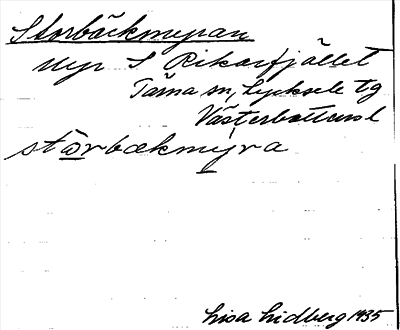 Storbäckmyran
myr S Rikarfjället
Tärna sn, Lycksele tg
Västerbottens l
storbækmyra
Lisa Lidberg 1935